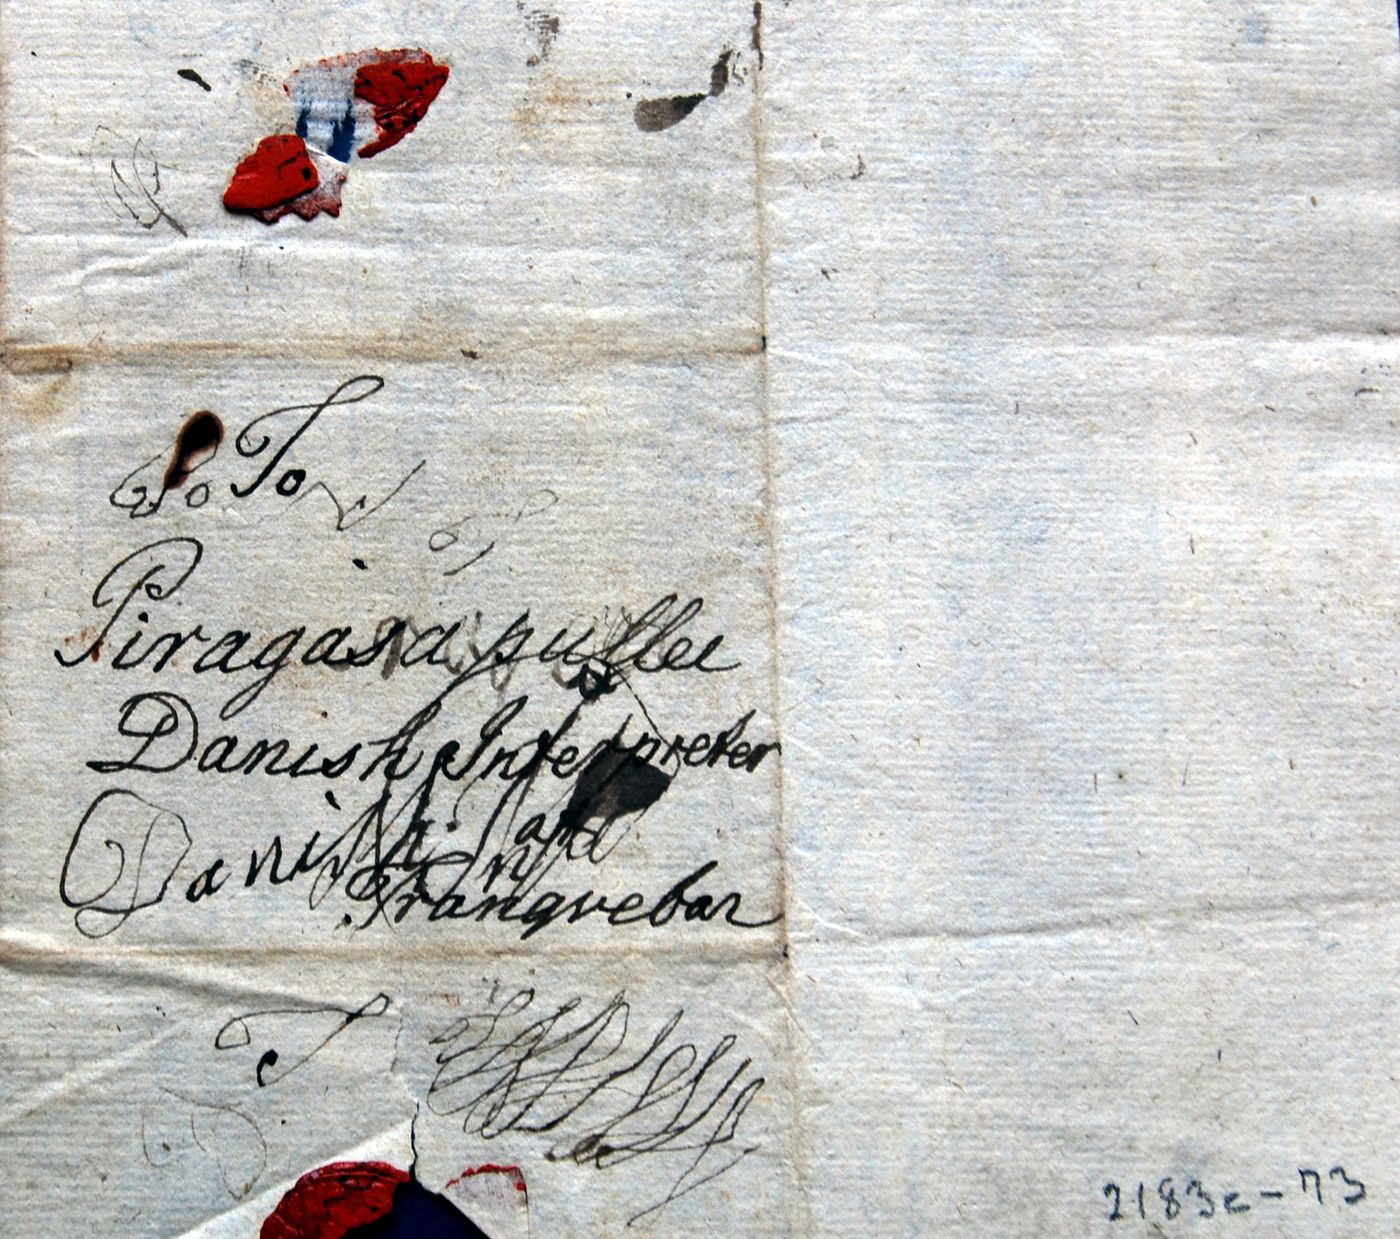 To To
Piragasa pullei
Danish Interpreter
Danish
Tranqvebar
T
2183c-73